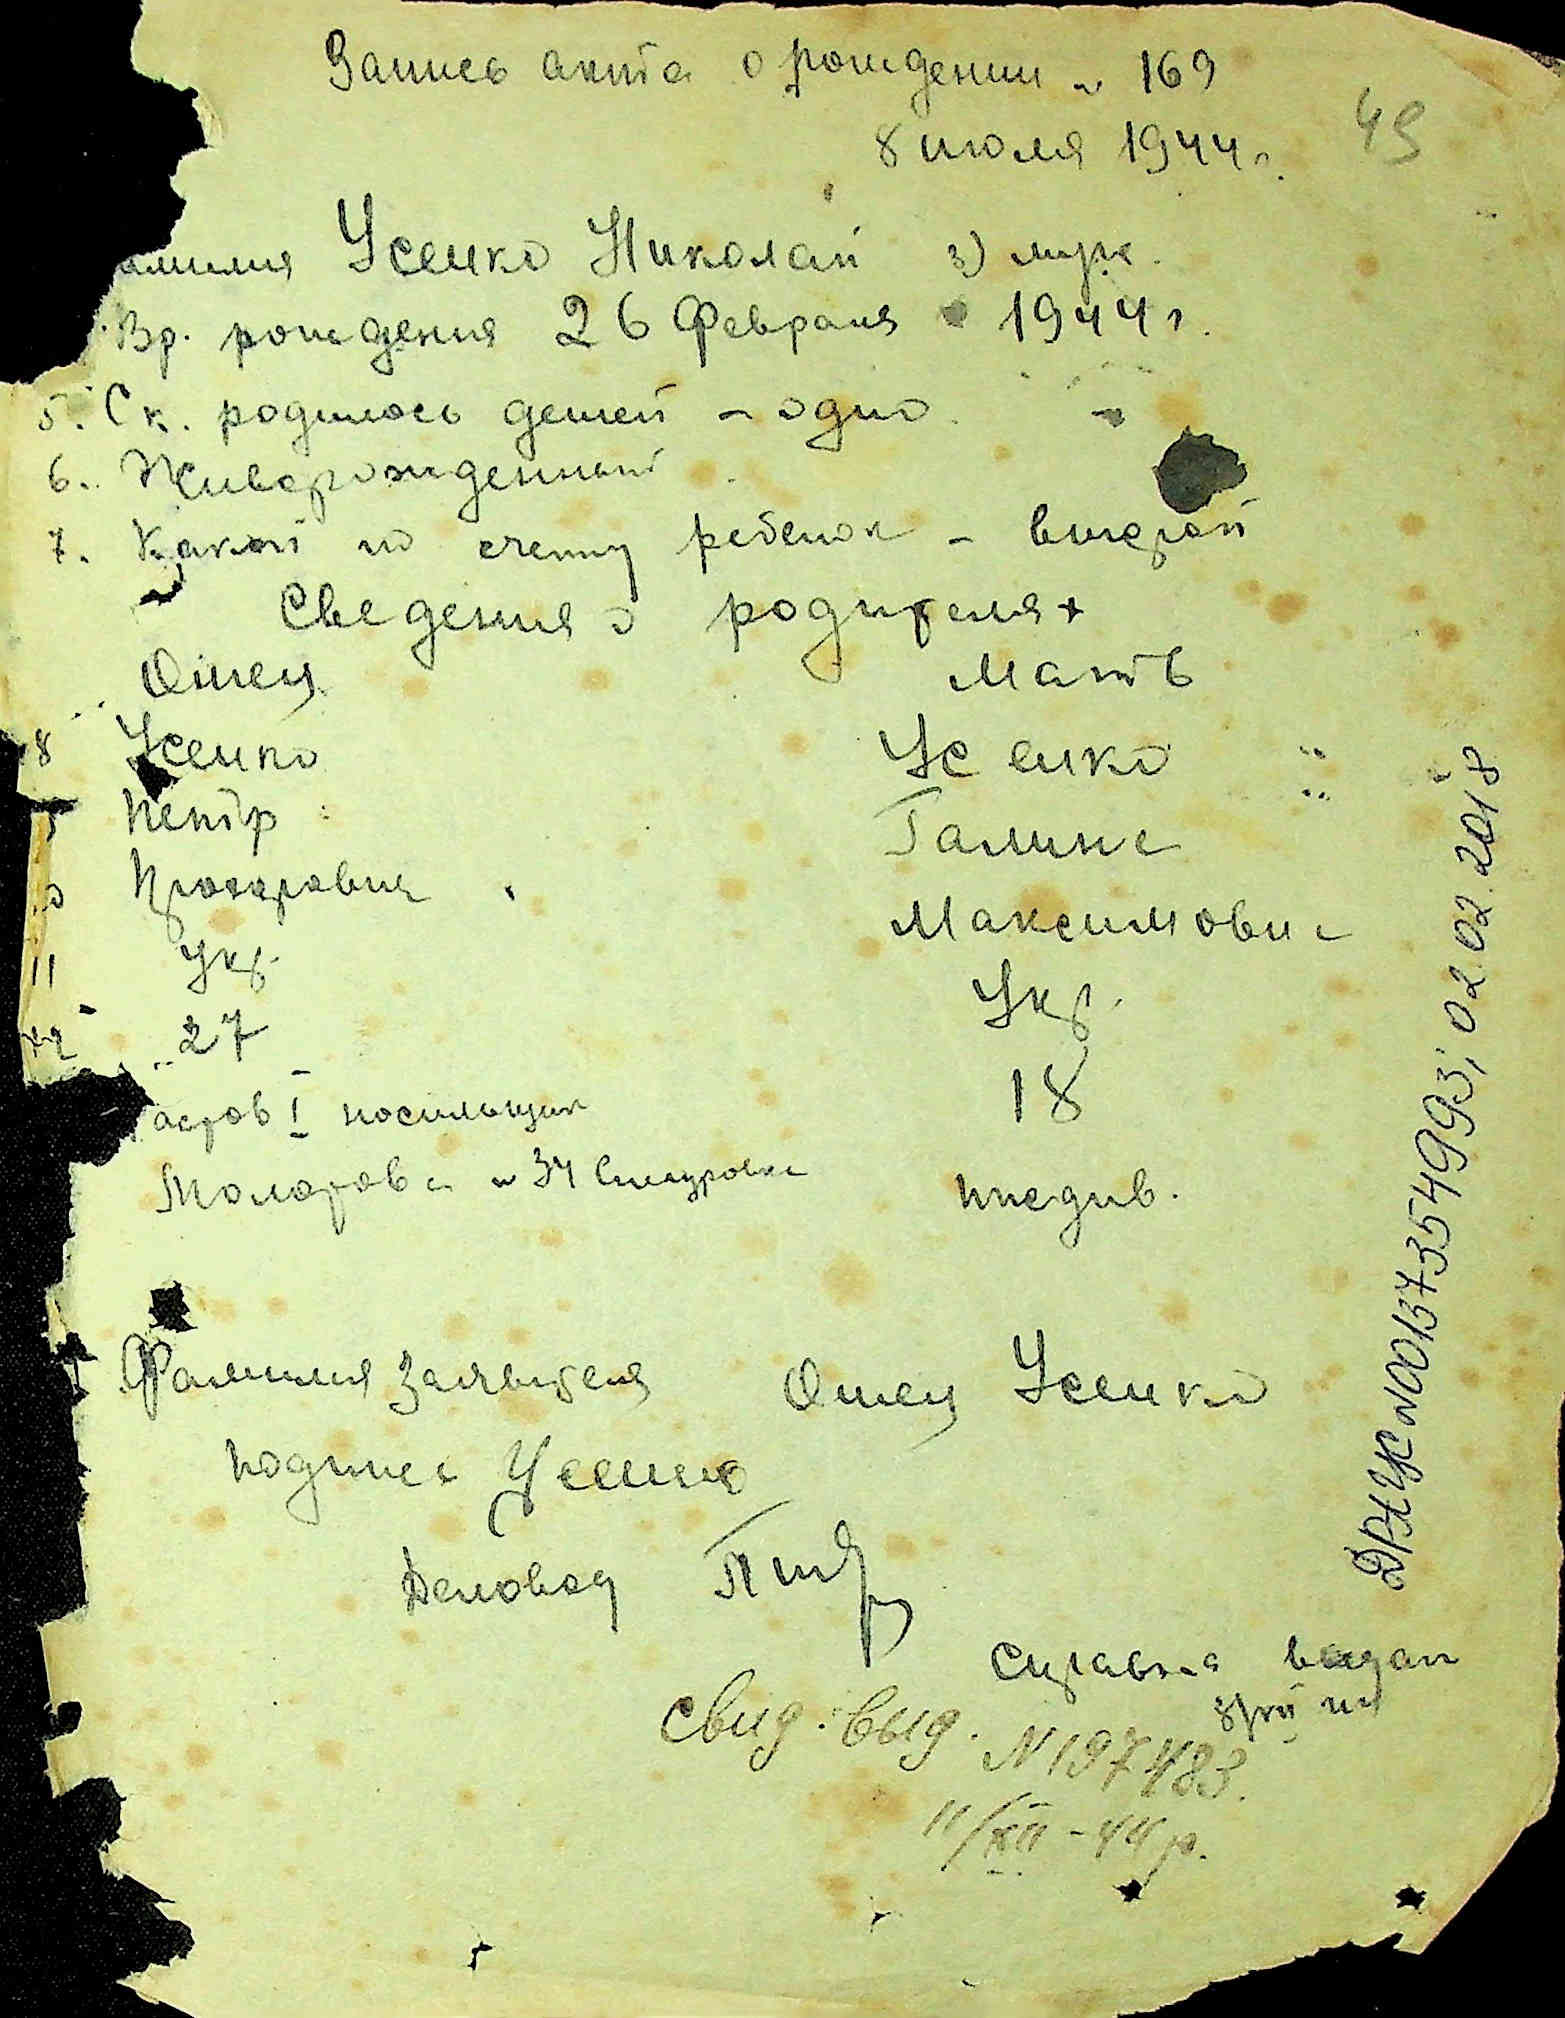 Запись акта о рождении № 169
8 июля 1944 г.
49
амилия Усенко Николай 3) муж.
Вр. рождения 26 февраля 1944 г.
5. Ск. родилось детей – одно
6. Живорожденный
7. Какой по счету ребенок – второй
Сведения о родителях
Отец Мать
8 Усенко Усенко
Петр Галина
Прохорович Максимовна
11 Укр. Укр.
12 27 18
I носильщик
Молотова № 34 иждив.
Фамилия заявителя Отец Усенко
подпись Усенко
Деловод
Справка выдан
свид. выд. № 197483.
11/XII – 44 р.
ДРАЦС № 00137354993; 02.02.2018